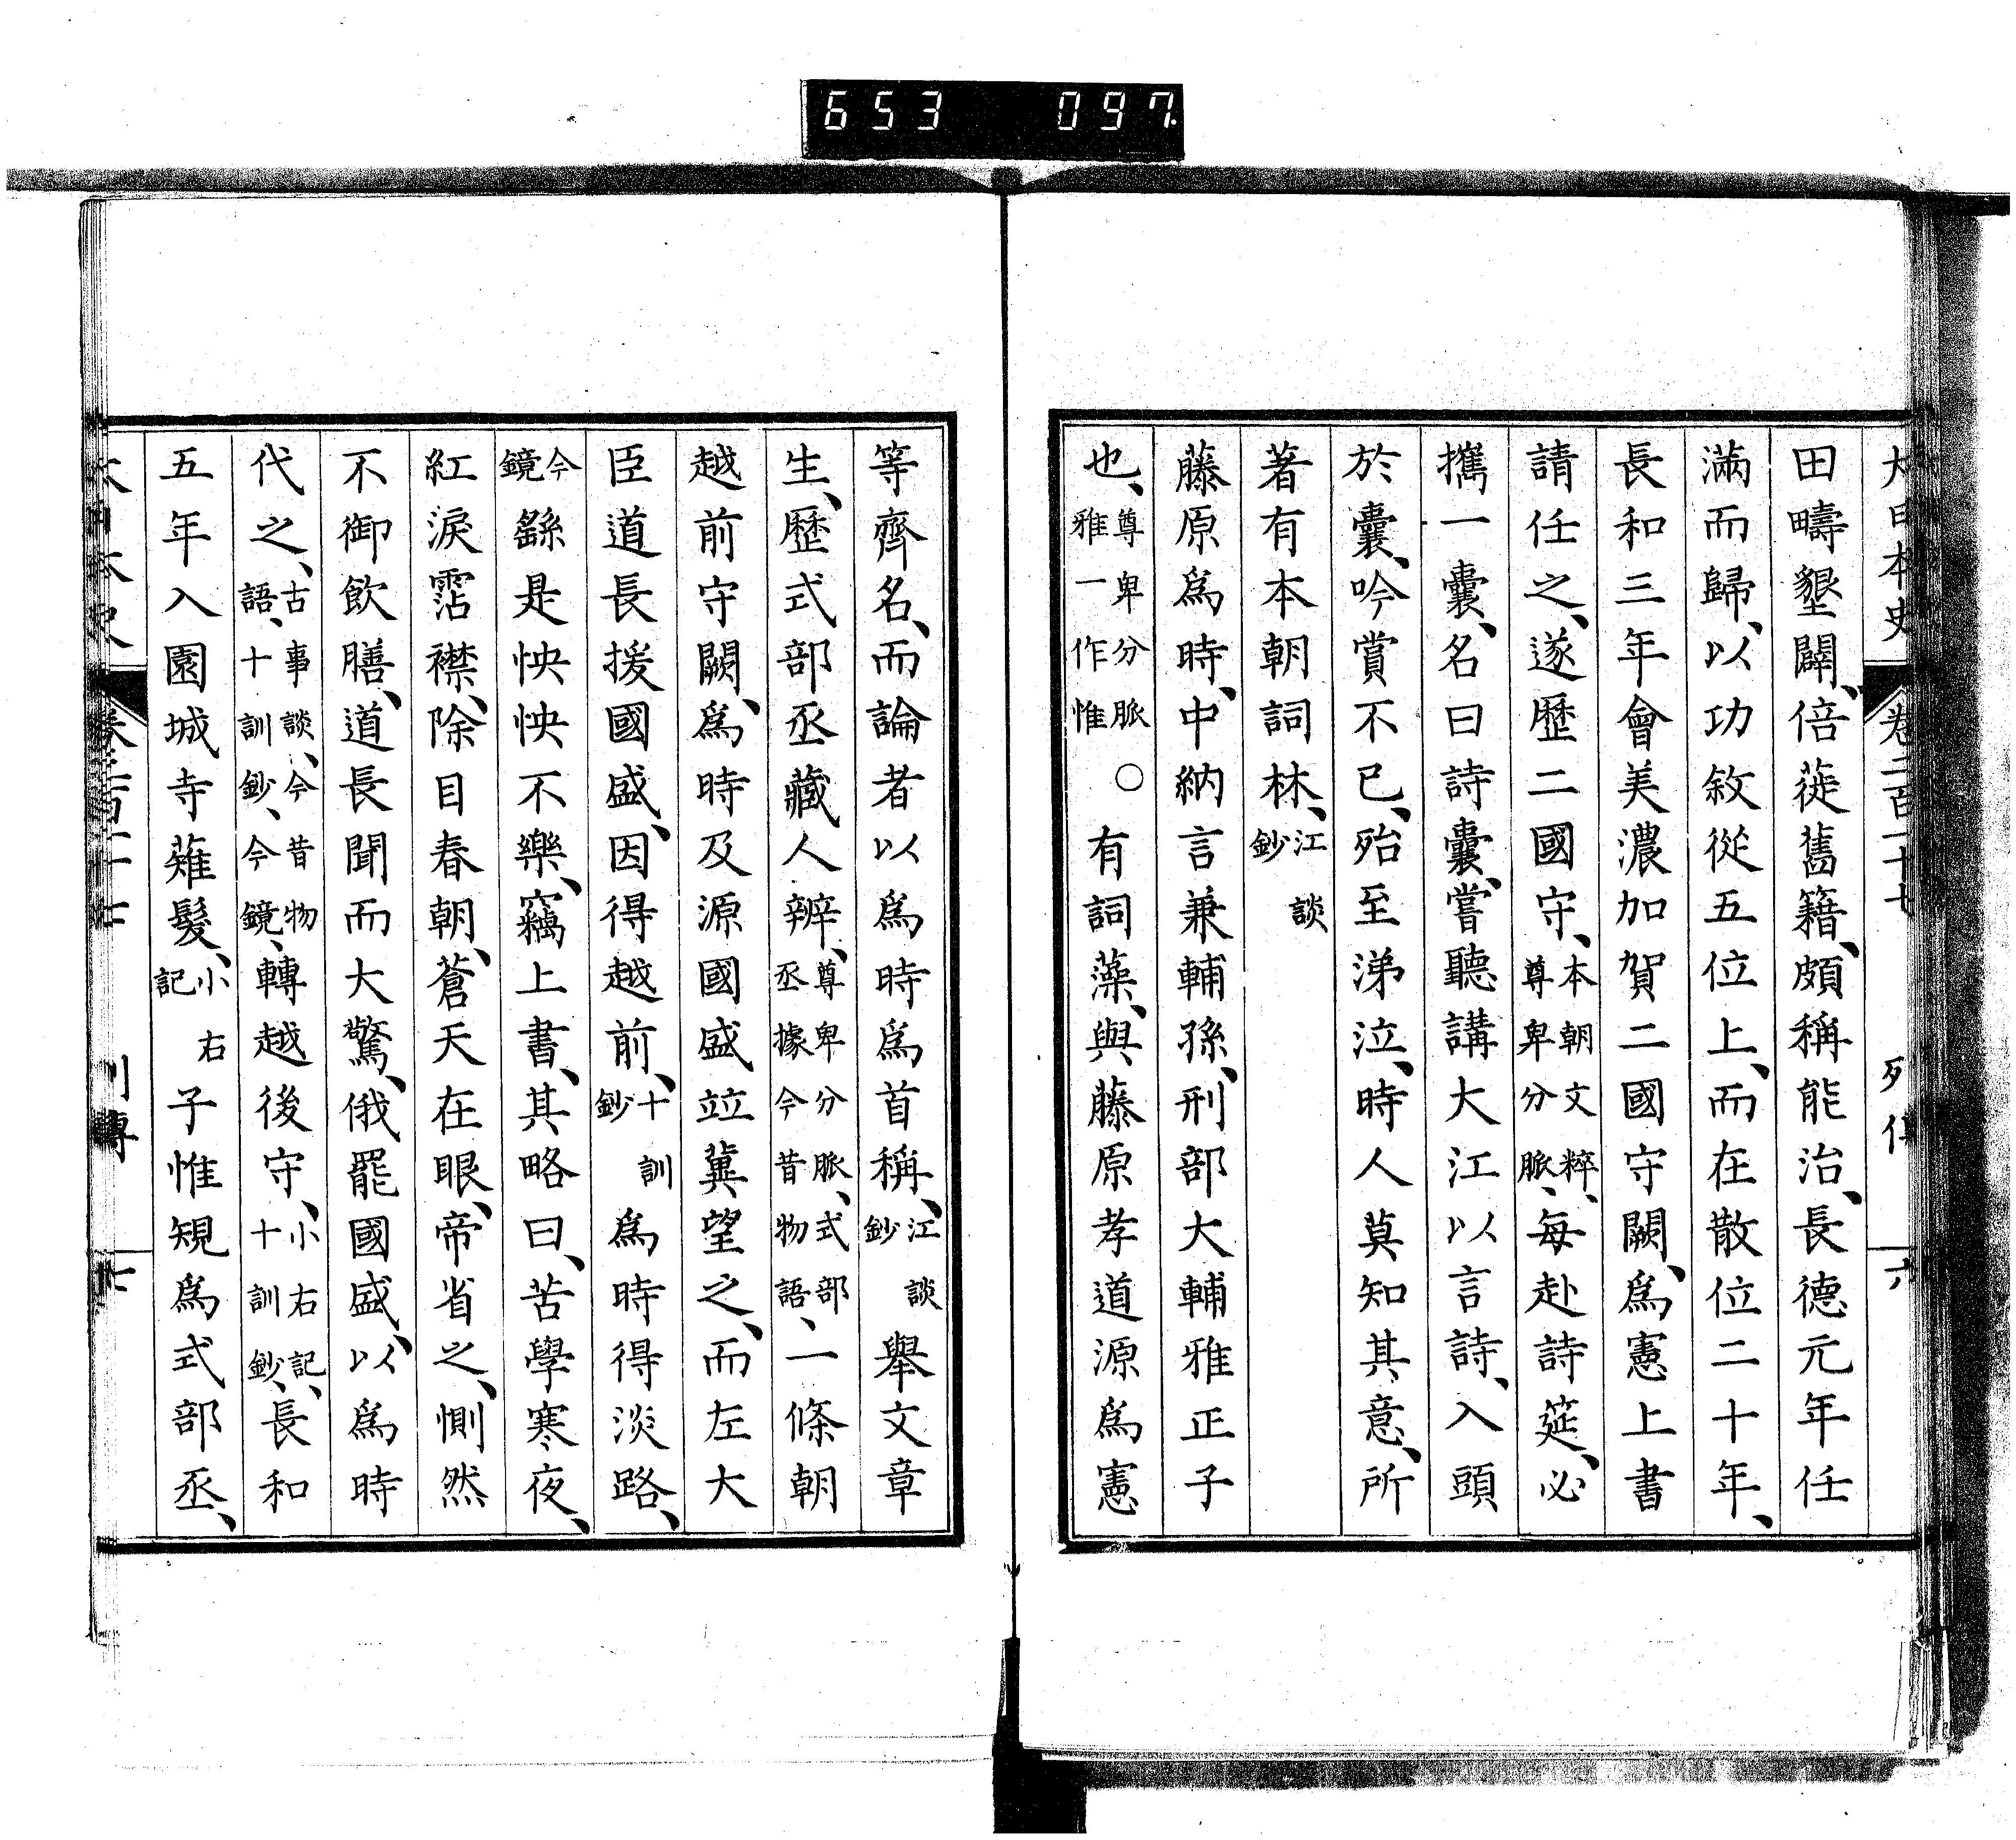 653 097
大日本史 卷二百一十七 列傳 六
田疇墾闢、倍蓰舊籍、頗稱能治、長德元年任
滿而歸、以功敘從五位上、而在散位二十年、
長和三年會美濃加賀二國守闕、爲憲上書
請任之、遂歷二國守、本朝文粹、尊卑分脈、每赴詩筵、必
攜一囊、名曰詩囊、嘗聽講大江以言詩、入頭
於囊、吟賞不已、殆至涕泣、時人莫知其意、所
著有本朝詞林、江談鈔
藤原爲時、中納言兼輔孫、刑部大輔雅正子
也、尊卑分脈○雅一作惟 有詞藻、與藤原孝道源爲憲
等齊名、而論者以爲時爲首稱、江談鈔 舉文章
生、歷式部丞藏人辨、尊卑分脈、式部丞據今昔物語、一條朝
越前守闕、爲時及源國盛竝冀望之、而左大
臣道長援國盛、因得越前、十訓鈔 爲時得淡路、
今鏡 繇是怏怏不樂、竊上書、其略曰、苦學寒夜、
紅淚霑襟、除目春朝、蒼天在眼、帝省之、惻然
不御飲膳、道長聞而大驚、俄罷國盛、以爲時
代之、古事談、今昔物語、十訓鈔、今鏡、轉越後守、小右記、十訓鈔、長和
五年入園城寺薙髮、小右記 子惟規爲式部丞、
大日本史 卷二百一十七 列傳 七